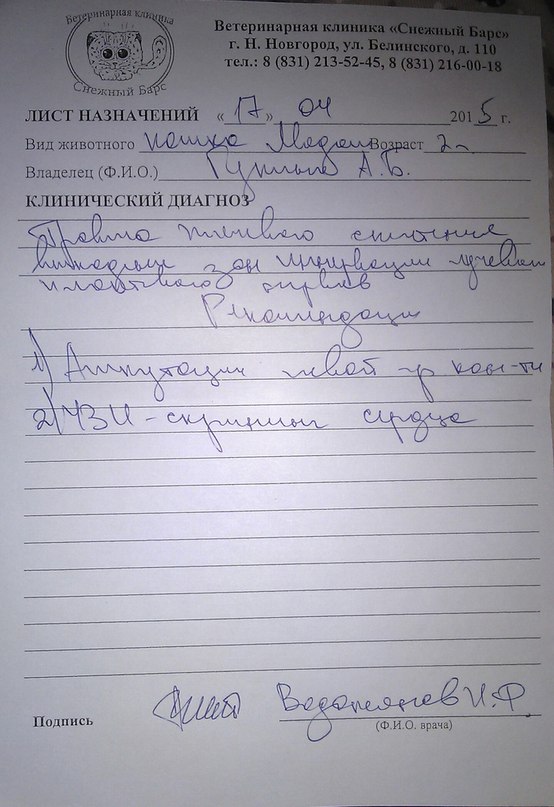 Ветеринарная клиника
Снежный Барс
Ветеринарная клиника «Снежный Барс»
г. Н. Новгород, ул. Белинского, д. 110
тел.: 8 (831) 213-52-45, 8 (831) 216-00-18
ЛИСТ НАЗНАЧЕНИЙ «17» 04 2015 г.
Вид животного кошка Возраст 2 г.
Владелец (Ф.И.О.) А.Б.
КЛИНИЧЕСКИЙ ДИАГНОЗ
Травма плечевого сплетения
выпадение зон иннервации лучевого
нервов
Рекомендации
1) Ампутация левой гр кон-ти
2) УЗИ - скрининг сердца
Подпись И.Ф.
(Ф.И.О. врача)